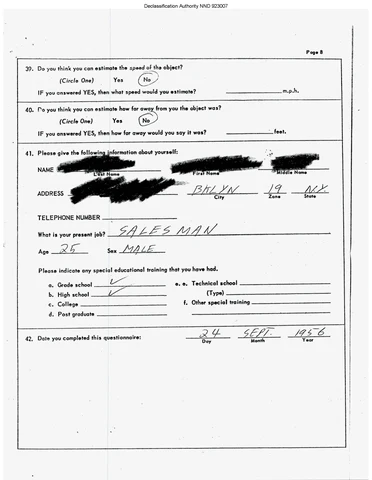 Declassification Authority NND 923007
Page 8
39. Do you think you can estimate the speed of the object?
(Circle One) Yes No
IF you answered YES, then what speed would you estimate? m.p.h.
40. Do you think you can estimate how far away from you the object was?
(Circle One) Yes No
IF you answered YES, then how far away would you say it was? feet.
41. Please give the following information about yourself:
NAME
Last Name First Name Middle Name
ADDRESS BKLYN 19 N.Y.
City Zone State
TELEPHONE NUMBER
What is your present job? SALESMAN
Age 25 Sex MALE
Please indicate any special educational training that you have had.
a. Grade school ✓ e. e. Technical school
b. High school ✓ (Type)
c. College f. Other special training
d. Post graduate
42. Date you completed this questionnaire: 24 SEPT. 1956
Day Month Year